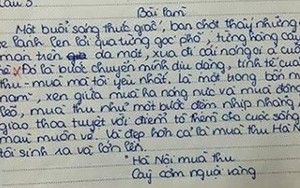 Bài làm
Một buổi sáng thức giấc, bạn chợt thấy những
lạnh len lỏi qua từng góc phố, từng hàng cây
man trên da mát, xua đi cái nóng ai của
hè. Đó là bước chuyển mình dịu dàng, tinh tế của
thu - mùa mà tôi yêu nhất, là một trong bốn
năm, xen giữa mùa hạ nóng nực và mùa đông
lẽo, mùa thu như một bước đệm nhịp nhàng
giao thoa tuyệt vời điểm tô thêm cho cuộc sống
màu muôn vẻ. Và đẹp hơn cả là mùa thu Hà
tôi sinh ra và lớn lên.
"Hà Nội mùa thu
Cây cơm nguội vàng